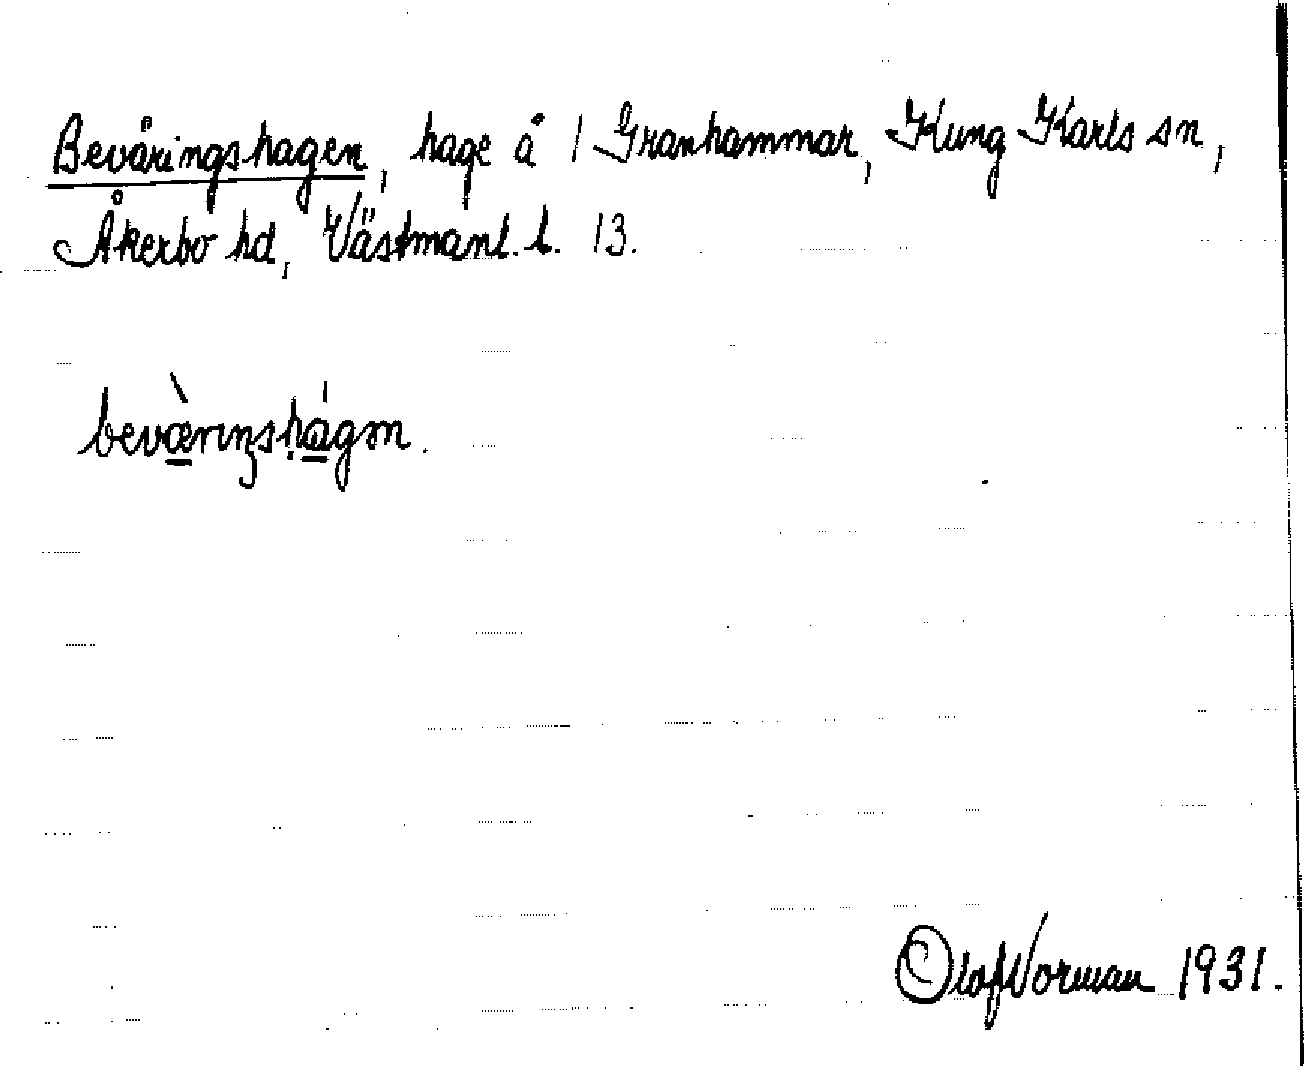 Beväringshagen, hage å 1 Granhammar, Kung Karls sn,
Åkerbo hd, Västmanl. l. 13.
beværıŋshagən.
Olof Norman 1931.